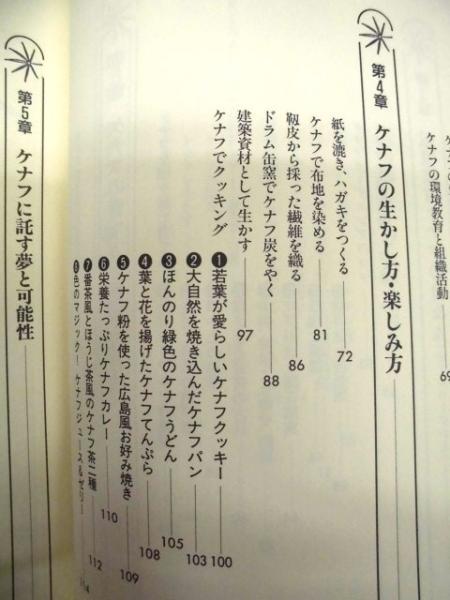 ケナフの環境教育と組織活動
69
第4章 ケナフの生かし方・楽しみ方
紙を漉き、ハガキをつくる 72
ケナフで布地を染める 81
靱皮から採った繊維を織る 86
ドラム缶窯でケナフ炭をやく 88
建築資材として生かす 97
ケナフでクッキング
❶若葉が愛らしいケナフクッキー 100
❷大自然を焼き込んだケナフパン 103
❸ほんのり緑色のケナフうどん 105
❹葉と花を揚げたケナフてんぷら 108
❺ケナフ粉を使った広島風お好み焼き 109
❻栄養たっぷりケナフカレー 110
❼番茶風とほうじ茶風のケナフ茶二種 112
❽色のマジック! ケナフジュース&ゼリー
第5章 ケナフに託す夢と可能性